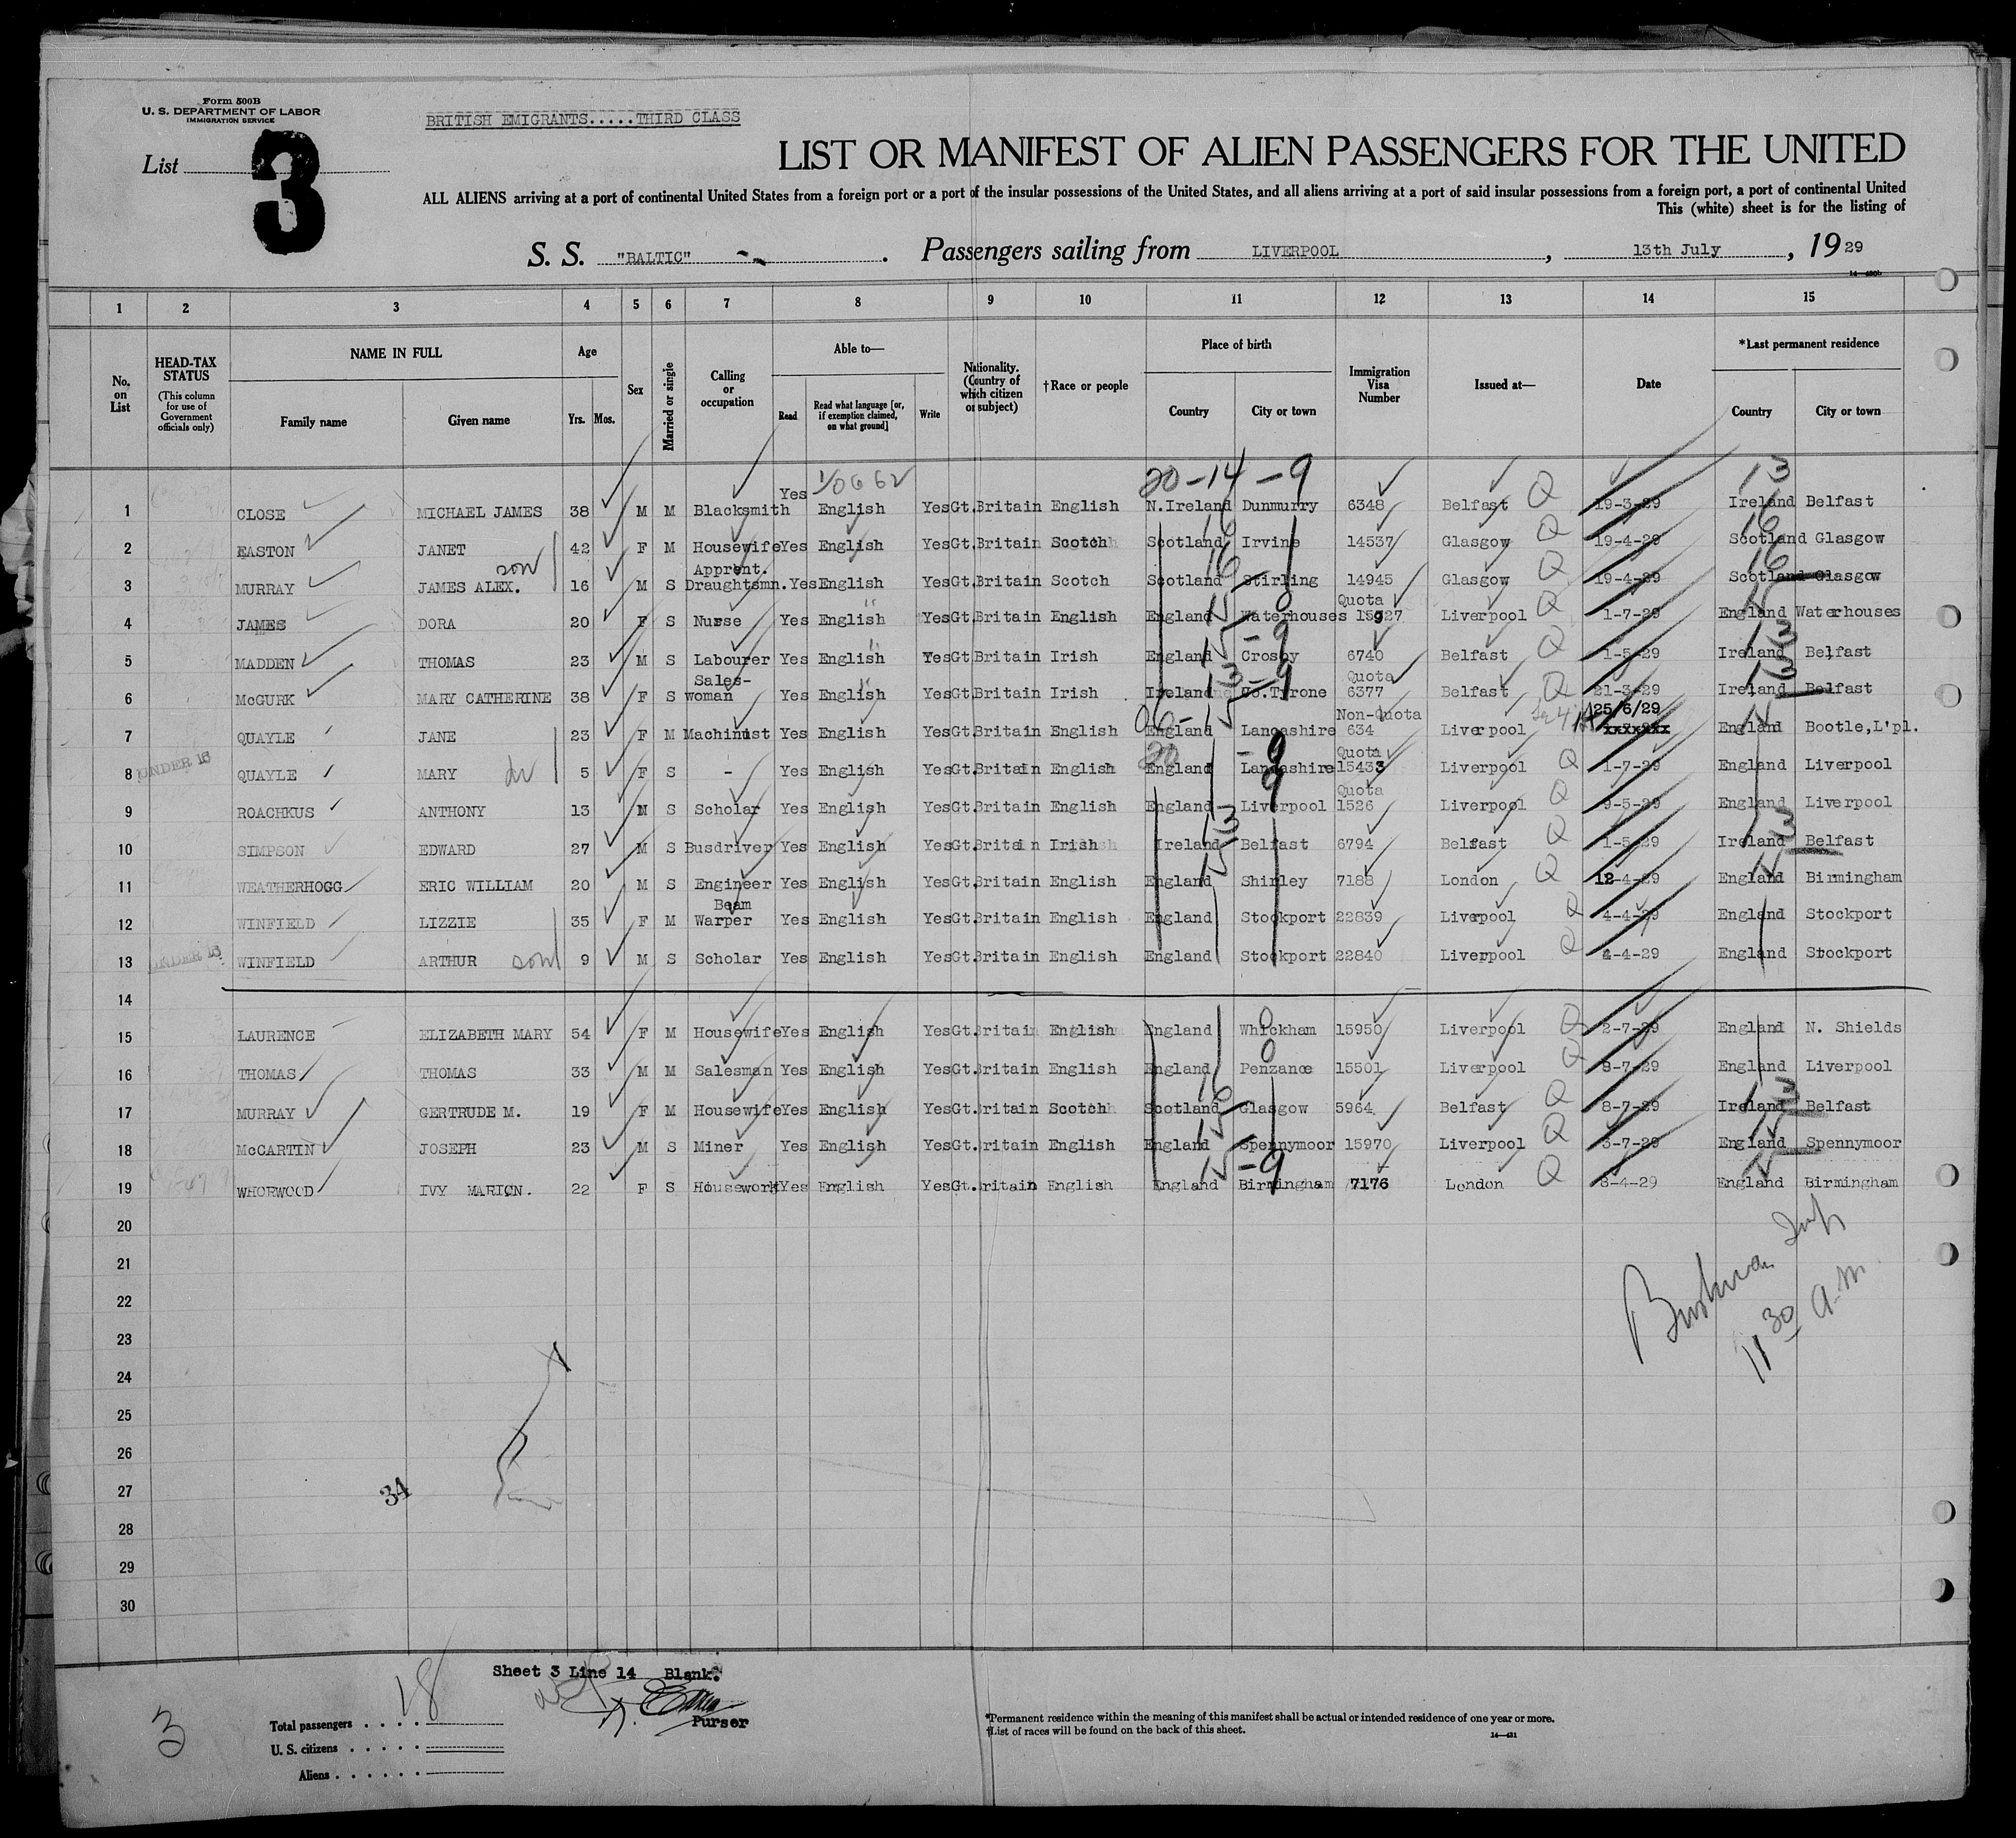 Form 500B
U. S. DEPARTMENT OF LABOR
IMMIGRATION SERVICE
BRITISH EMIGRANTS.....THIRD CLASS
List
3
LIST OR MANIFEST OF ALIEN PASSENGERS FOR THE UNITED
ALL ALIENS arriving at a port of continental United States from a foreign port or a port of the insular possessions of the United States, and all aliens arriving at a port of said insular possessions from a foreign port, a port of continental United
This (white) sheet is for the listing of
S. S. "BALTIC" . Passengers sailing from LIVERPOOL , 13th July , 1929
1 2 3 4 5 6 7 8 9 10 11 12 13 14 15
No. on List
HEAD-TAX STATUS (This column for use of Government officials only)
NAME IN FULL
Family name Given name
Age Yrs. Mos.
Sex
Married or single
Calling or occupation
Able to—
Read
Read what language [or, if exemption claimed, on what ground]
Write
Nationality. (Country of which citizen or subject)
†Race or people
Place of birth
Country City or town
Immigration Visa Number
Issued at—
Date
*Last permanent residence
Country City or town
20-14-9 13
1 CLOSE MICHAEL JAMES 38 M M Blacksmith Yes English Yes Gt.Britain English N.Ireland Dunmurry 6348 Belfast Q 19-3-29 Ireland Belfast
2 EASTON JANET 42 F M Housewife Yes English Yes Gt.Britain Scotch Scotland Irvine 14537 Glasgow Q 19-4-29 Scotland Glasgow
3 MURRAY JAMES ALEX. son 16 M S Apprent. Draughtsmn. Yes English Yes Gt.Britain Scotch Scotland Stirling 14945 Glasgow Q 19-4-29 Scotland Glasgow
4 JAMES DORA 20 F S Nurse Yes English Yes Gt.Britain English England Waterhouses Quota 15927 Liverpool Q 1-7-29 England Waterhouses
5 MADDEN THOMAS 23 M S Labourer Yes English Yes Gt.Britain Irish England Crosby 6740 Belfast Q 1-5-29 Ireland Belfast
6 McGURK MARY CATHERINE 38 F S Sales-woman Yes English Yes Gt.Britain Irish Ireland Co.Tyrone Quota 6377 Belfast Q 21-3-29 Ireland Belfast
7 QUAYLE JANE 23 F M Machinist Yes English Yes Gt.Britain English England Lancashire Non-Quota 634 Liverpool 25/6/29 xxxxxxx England Bootle,L'pl.
8 UNDER 16 QUAYLE MARY 5 F S - Yes English Yes Gt.Britain English England Lancashire Quota 15433 Liverpool Q 1-7-29 England Liverpool
9 ROACHKUS ANTHONY 13 M S Scholar Yes English Yes Gt.Britain English England Liverpool Quota 1526 Liverpool Q 9-5-29 England Liverpool
10 SIMPSON EDWARD 27 M S Busdriver Yes English Yes Gt.Britain Irish Ireland Belfast 6794 Belfast Q 1-5-29 Ireland Belfast
11 WEATHERHOGG ERIC WILLIAM 20 M S Engineer Yes English Yes Gt.Britain English England Shirley 7188 London Q 12-4-29 England Birmingham
12 WINFIELD LIZZIE 35 F M Beam Warper Yes English Yes Gt.Britain English England Stockport 22839 Liverpool Q 4-4-29 England Stockport
13 UNDER 16 WINFIELD ARTHUR son 9 M S Scholar Yes English Yes Gt.Britain English England Stockport 22840 Liverpool Q 4-4-29 England Stockport
14
15 LAURENCE ELIZABETH MARY 54 F M Housewife Yes English Yes Gt.Britain English England Whickham 15950 Liverpool Q 2-7-29 England N. Shields
16 THOMAS THOMAS 33 M M Salesman Yes English Yes Gt.Britain English England Penzance 15501 Liverpool Q 8-7-29 England Liverpool
17 MURRAY GERTRUDE M. 19 F M Housewife Yes English Yes Gt.Britain Scotch Scotland Glasgow 5964 Belfast Q 8-7-29 Ireland Belfast
18 McCARTIN JOSEPH 23 M S Miner Yes English Yes Gt.Britain English England Spennymoor 15970 Liverpool Q 3-7-29 England Spennymoor
19 WHORWOOD IVY MARION. 22 F S Housework Yes English Yes Gt.Britain English England Birmingham 7176 London Q 8-4-29 England Birmingham
20
21
22
23
24
25
26
27
28
29
30
11 30 a.m.
34
Sheet 3 Line 14 Blank.
Purser
3
18
Total passengers
U. S. citizens
Aliens
*Permanent residence within the meaning of this manifest shall be actual or intended residence of one year or more.
†List of races will be found on the back of this sheet.
14—431